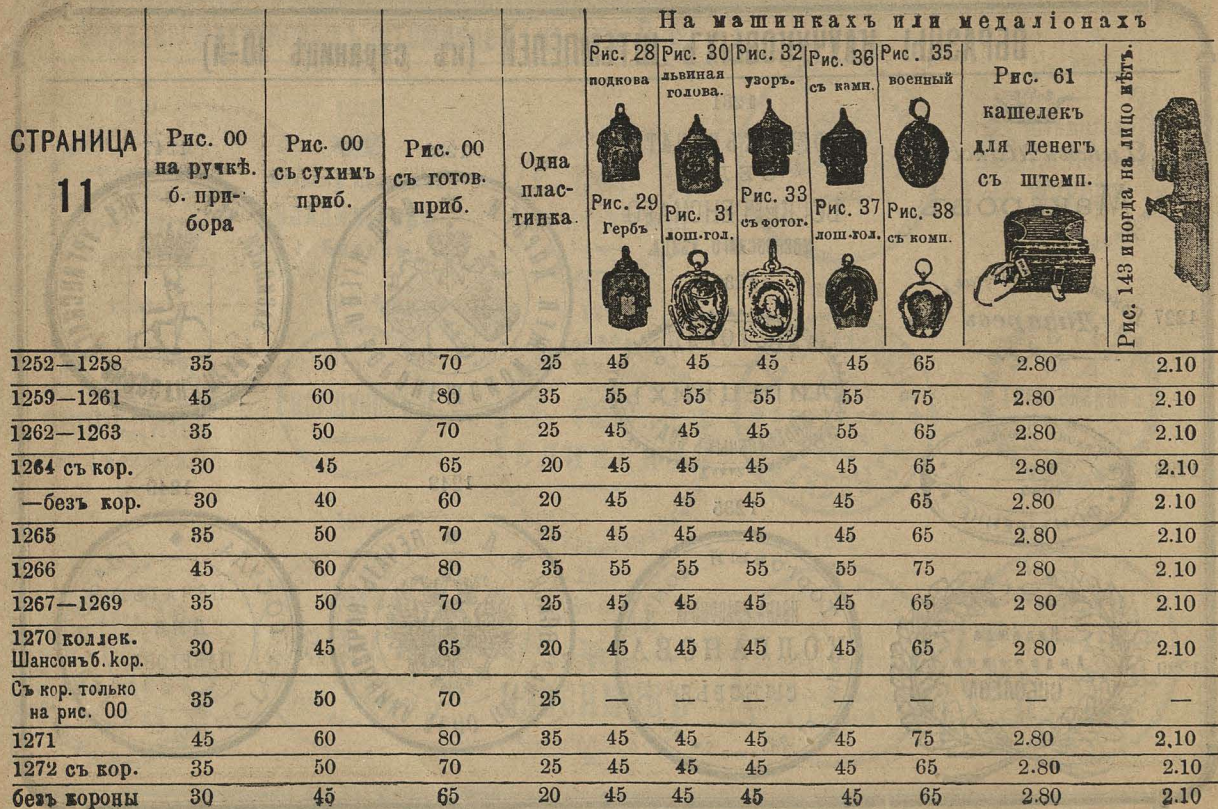 На машинкахъ или медаліонахъ
СТРАНИЦА
11
Рис. 00
на ручкѣ.
б. при-
бора
Рис. 00
съ сухимъ
приб.
Рис. 00
съ готов.
приб.
Одна
плас-
тинка.
Рис. 28
подкова
Рис. 29
Гербъ
Рис. 30
львиная
голова.
Рис. 31
лош.гол.
Рис. 32
узоръ.
Рис. 33
съ фотог.
Рис. 36
съ камн.
Рис. 37
лош.гол.
Рис. 35
военный
Рис. 38
съ комп.
Рис. 61
кашелекъ
для денегъ
съ штемп.
Рис. 143 иногда на лицо нѣтъ.
1252—1258 35 50 70 25 45 45 45 45 65 2.80 2.10
1259—1261 45 60 80 35 55 55 55 55 75 2.80 2.10
1262—1263 35 50 70 25 45 45 45 55 65 2.80 2.10
1264 съ кор. 30 45 65 20 45 45 45 45 65 2.80 2.10
—безъ кор. 30 40 60 20 45 45 45 45 65 2.80 2.10
1265 35 50 70 25 45 45 45 45 65 2.80 2.10
1266 45 60 80 35 55 55 55 55 75 2 80 2.10
1267—1269 35 50 70 25 45 45 45 45 65 2 80 2.10
1270 коллек.
Шансонъб.кор. 30 45 65 20 45 45 45 45 65 2 80 2.10
Съ кор. только
на рис. 00 35 50 70 25 — — — — — — —
1271 45 60 80 35 45 45 45 45 75 2.80 2.10
1272 съ кор. 35 50 70 25 45 45 45 45 65 2.80 2.10
безъ короны 30 45 65 20 45 45 45 45 65 2.80 2.10